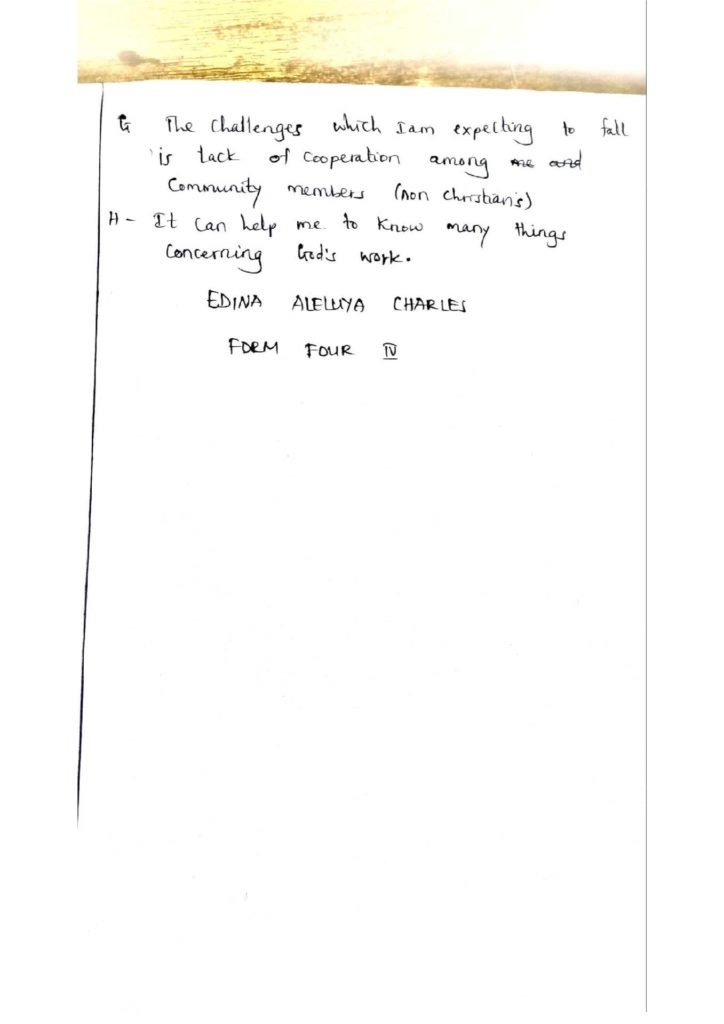 G The challenges which I am expecting to fall
is lack of cooperation among me and
Community members (non christian's)
H - It can help me to know many things
concerning God's work.
EDINA ALELUYA CHARLES
FORM FOUR IV